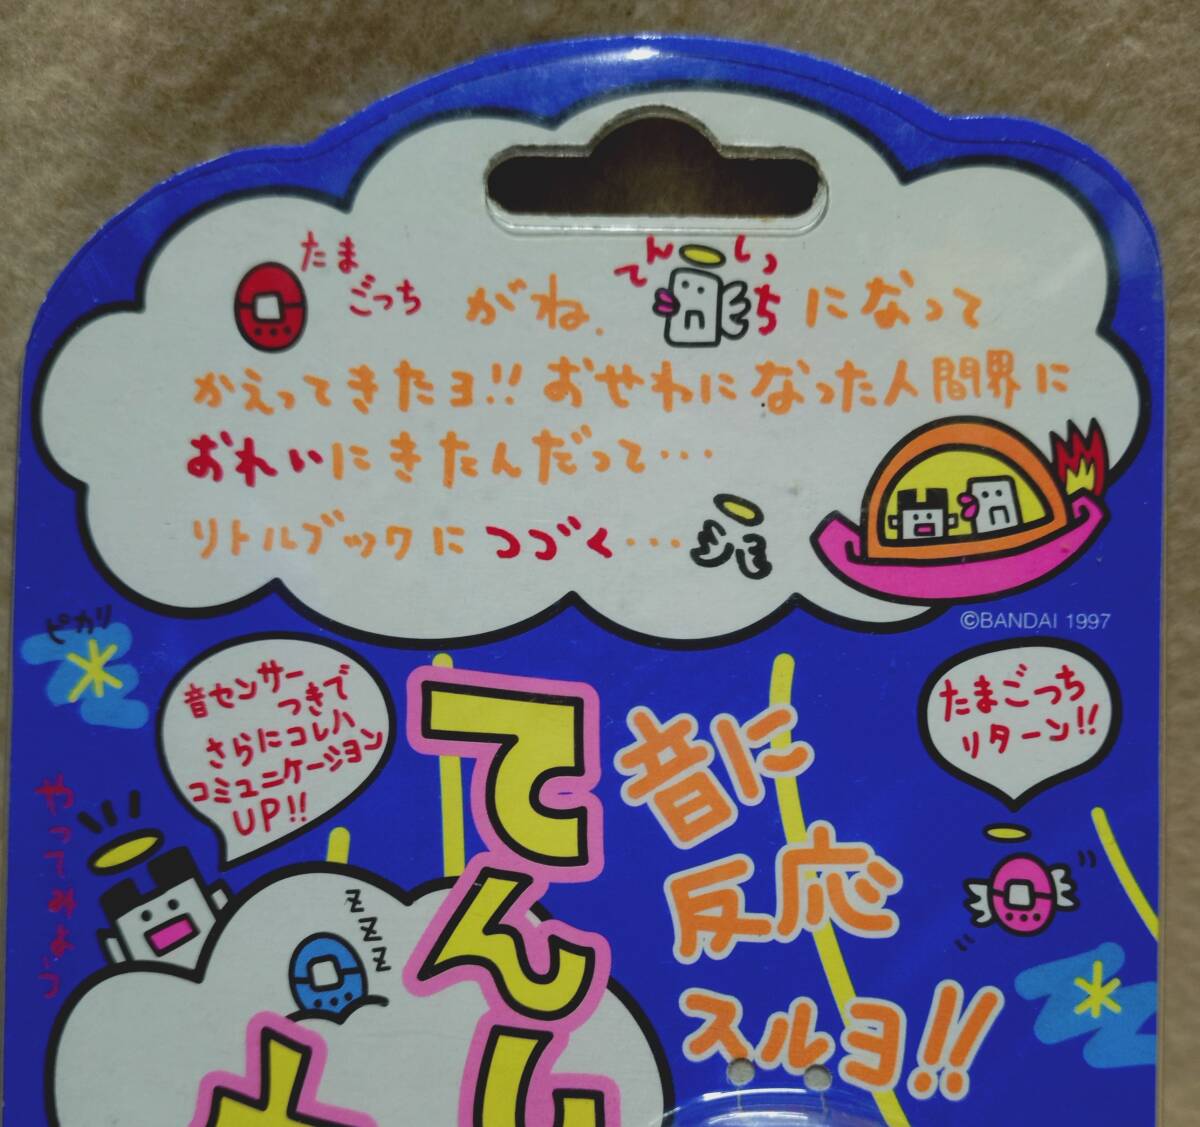 たまごっち がね、てんしっち になって
かえってきたヨ!! おせわになった人間界に
おれいにきたんだって…
リトルブックにつづく…
©BANDAI 1997
ピカリ
音センサー
つきで
さらにコレハ
コミュニケーション
UP!!
たまごっち
リターン!!
やってみよう
zzz
てんし
音に
反応
スルヨ!!